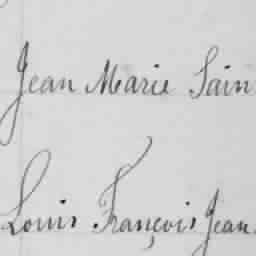 Jean Marie Sain
Louis François Jean